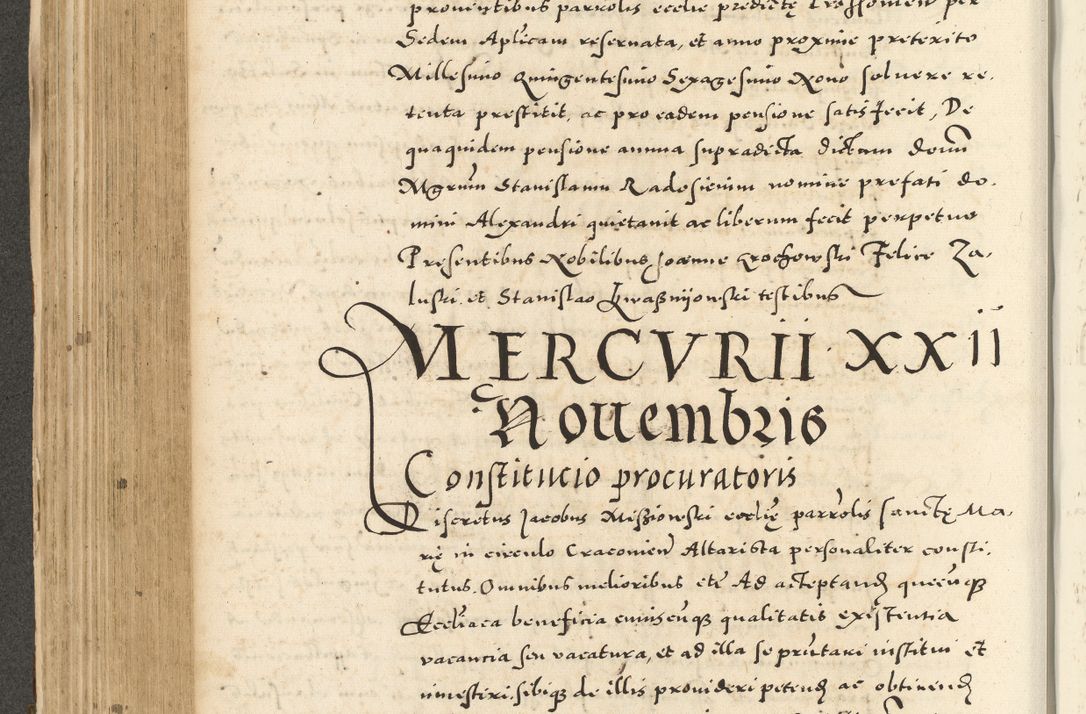 prouentibus parrolis ecclie predictę Crossonien per
Sedem Aplicam reseruata, et anno proxime preterito
Millesimo Quingentesimo Sexagesimo Nono soluere re-
tenta prestitit, ac pro eadem pensione satisfecit, De
qua quidem pensione annua supradicta dictum domi
Mgrum Stanislaum Radosicium nomine prefati do-
mini Alexandri quietauit ac liberum fecit perpetuo
Presentibus Nobilibus Joanne Grochowski Felice Za-
luski et Stanislao Kwaszniiowski testibus
MERCVRII XXII
Nouembris
Constitucio procuratoris
Discretus Jacobus MiszIowski ecclię parrolis sanctę Ma-
rię in circulo Cracouien Altarista personaliter consti-
tutus. Omnibus melioribus etc Ad acceptand quecuq
Ecclīaca beneficia cuiuscuq qualitatis existentia
vacancia seu vacatura, et ad illa se prntari institui et
inuestiri, sibiq de illis prouideri petend ac obtinend